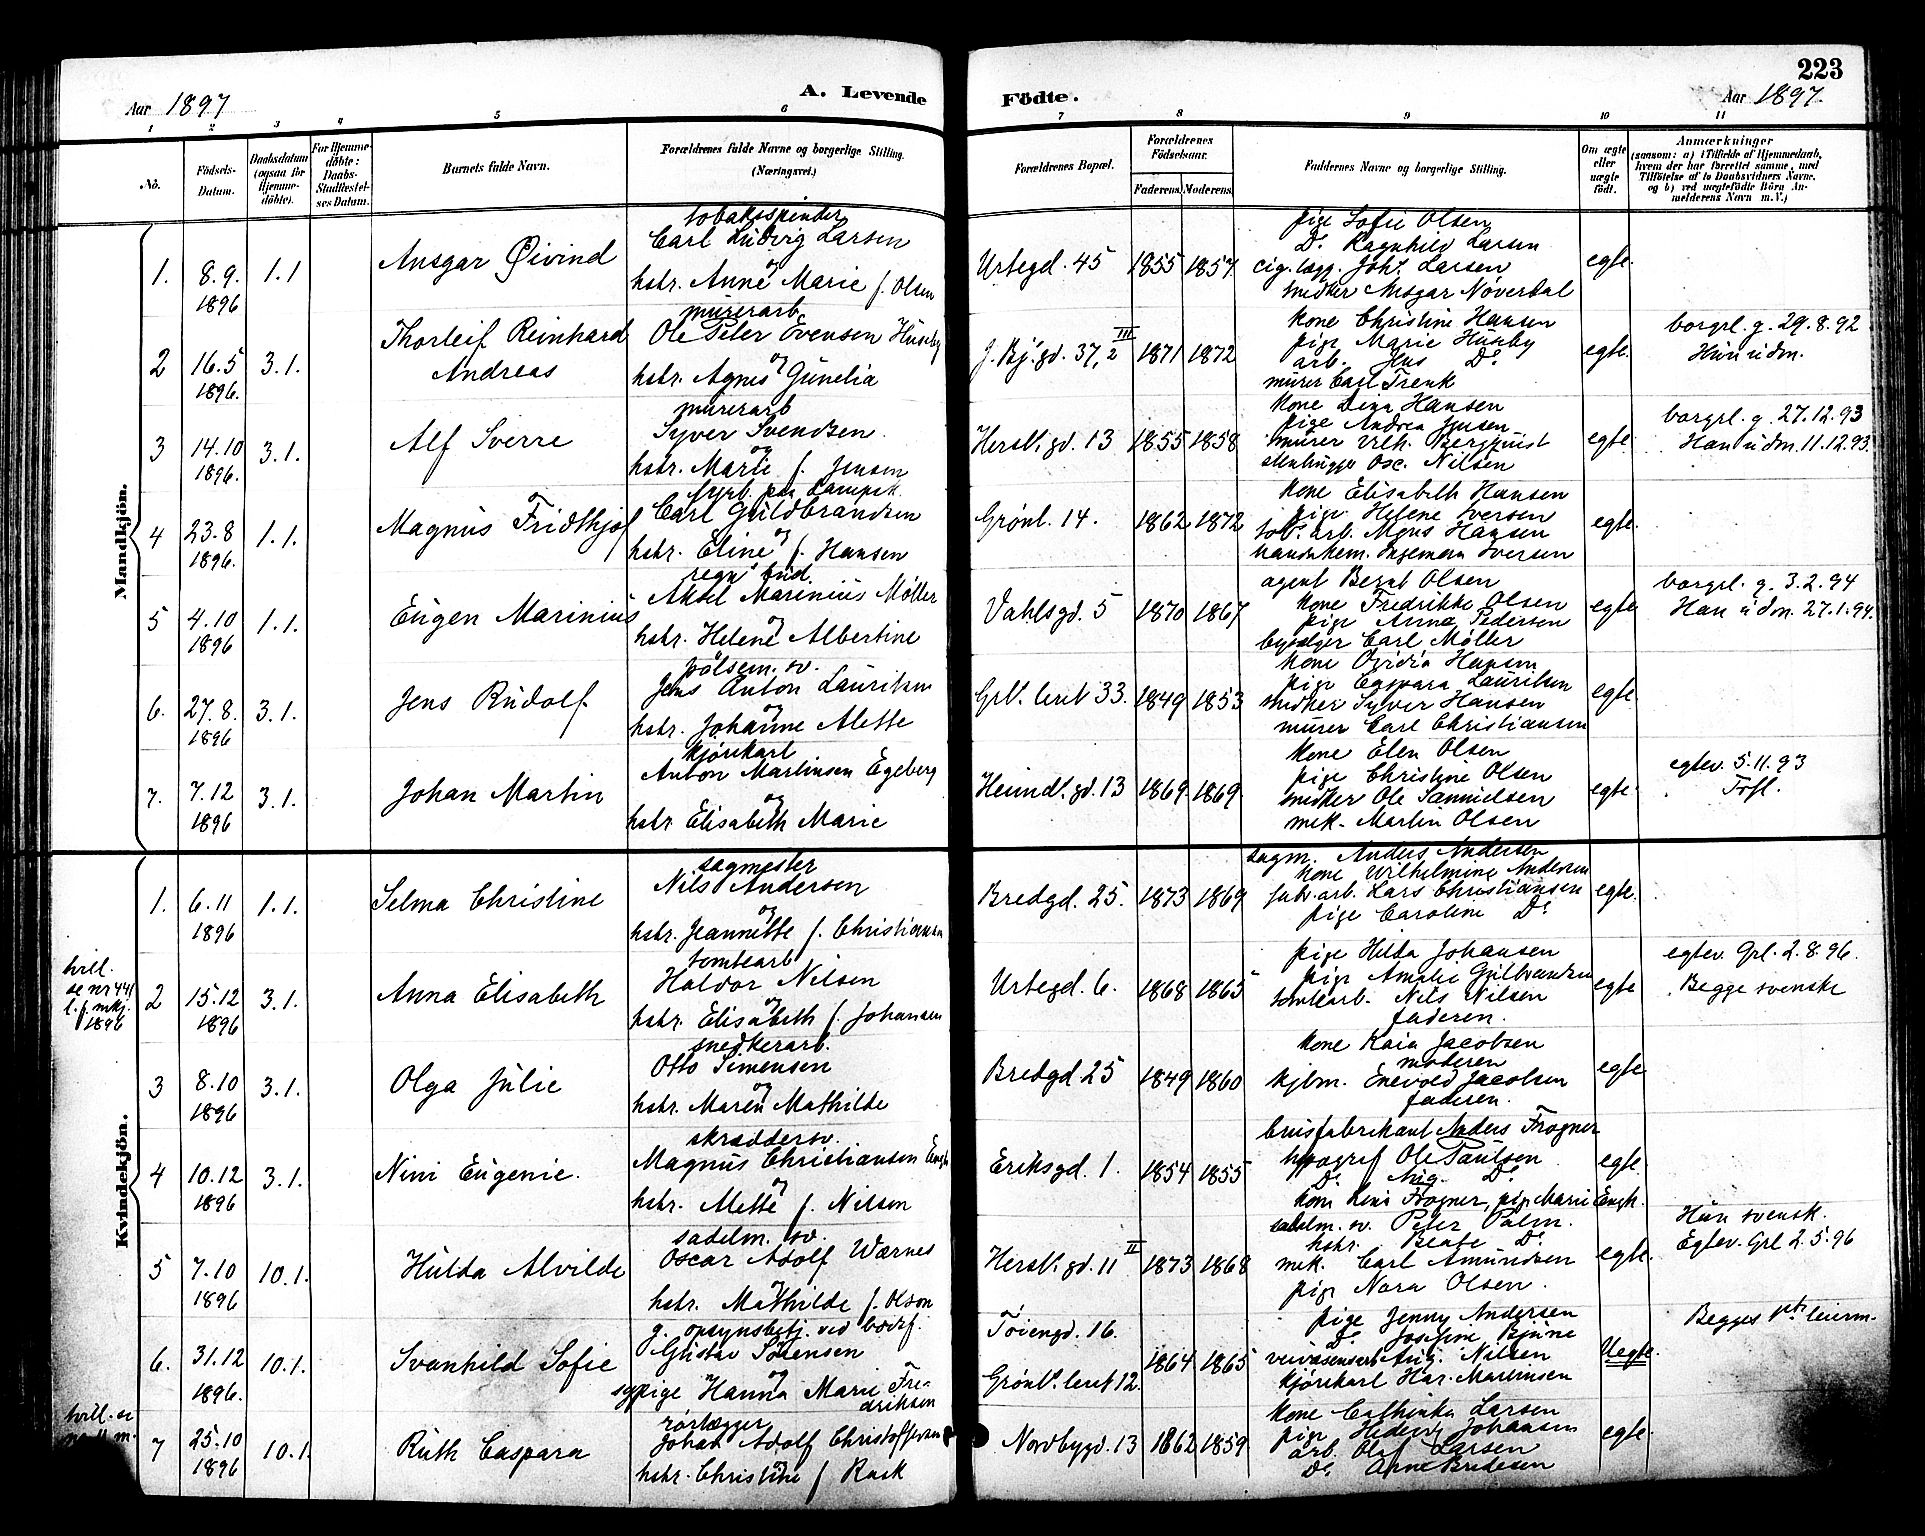 223
Aar 1897 A. Levende Födte. Aar 1897.
1 2 3 4 5 6 7 8 9 10 11
No.
Födsels-
Datum.
Daabsdatum
(ogsaa for
Hjemme-
döbte).
For Hjemme-
döbte:
Daabs-
Stadfæstel-
ses Datum.
Barnets fulde Navn.
Forældrenes fulde Navne og borgerlige Stilling.
(Næringsvei.)
Forældrenes Bopæl.
Forældrenes
Födselsaar.
Faderens. Moderens.
Faddernes Navne og borgerlige Stilling.
Om ægte
eller
uægte
født.
Anmærkninger
(saasom: a) i Tilfælde af Hjemmedaab,
hvem der har forrettet samme, med
Tilföielse af to Daabsvidners Navne,
og b) ved uægtefödte Börn An-
melderens Navn m. V.)
Mandkjön.
1. 8.9. 1896 1.1 Ansgar Øivind
tobaksspinder
Carl Ludvig Larsen
og
hstr. Anne Marie f. Olsen
Urtegd. 45 1855 1857
pige Sofie Olsen
Do Ragnhild Larsen
cig. lægg. Johs. Larsen
snedker Ansgar Nøverdal
egte.
2 16.5 1896. 3.1. Thorleif Reinhard
Andreas
murerarb.
Ole Peter Evensen Huseby
og
hstr. Agnes Gunelia
J. Bj. gd. 37, 2 III 1871 1872
kone Christine Hansen
pige Marie Huseby
arb. Jens Do
murer Carl Trenk
egte.
borgrl. g. 29.8.92
Hun udm.
3 14.10 1896. 3.1. Alf Sverre
murerarb
Syver Svendsen
og
hstr. Marie f. Jensen
Hersl. gd. 13 1855 1858
kone Dina Hansen
pige Andrea Jensen
murer Vilh. Bergquist
stenhugger Osc. Nilsen
egte.
borgrl. g. 27.12.93
Han udm. 11.12.93.
4 23.8 1896. 1.1. Magnus Fridthjof
Carl Guldbrandsen
og
hstr. Eline f. Hansen
Grønl. 14. 1862 1872
kone Elisabeth Hansen
pige Helene Iversen
tob. arb. Agnes Hansen
handskem. Ingemann Iversen
egte
5 4.10 1896 1.1. Eugen Marinius
regn. bud.
Aksel Marinius Møller
og
hstr. Helene Albertine
Vahlsgd. 5 1870 1867
agent Bernt Olsen
kone Fredrikke Olsen
pige Anna Pedersen
bysælger Carl Møller
egte
borgrl. g. 3.2.94
Han udm. 27.1.94.
6. 27.8. 1896 3.1. Jens Rudolf
pölsem. sv.
Jens Anton Lauritsen
og
hstr. Johanne Alette
Grl. leret 33. 1849 1853
kone Ovidia Hansen
pige Lauritsen
snedker Syver Hansen
murer Carl Christiansen
egte
7. 7.12 1896 3.1. Johan Martin
kjørekarl
Anton Martinsen Egeberg
og
hstr Elisabeth Marie
Heimdl. gd. 13 1869 1869
kone Elen Olsen
pige Christine Olsen
snedker Ole Samuelsen
mek. Martin Olsen
egte.
egtev. 5.11.93
Trfl.
Kvindekjön.
1. 6.11 1896 1.1. Selma Christine
sagmester
Nils Andersen
og
hstr. Jeannette f. Christiansen
Bredgd. 25. 1873 1869
sagm. Anders Andersen
kone Wilhelmine Andersen
fabr. arb. Lars Christiansen
pige Caroline Do
egte.
tvill.
se nr 441
l. f. mkj.
1896
2 15.12 1896 3.1. Anna Elisabeth
tomtearb
Haldor Nilsen
og
hstr. Elisabeth f. Johansen
Urtegd. 6. 1868 1865
pige Hilda Johansen
pige Amalie Gulbrandsen
tomtearb. Nils Nilsen
faderen.
egte
egtev. Grl. 2.8.96.
Begge svenske
3 8.10 1896 3.1. Olga Julie
snedkerarb.
Otto Simensen
og
hstr. Maren Mathilde
Bredgd 25 1849 1860
kone Kaia Jacobsen
moderen
kjbm. Enevold Jacobsen
faderen.
egte
4 10.12 1896 3.1. Nini Eugenie.
skræddersv.
Magnus Christiansen Engh
og
hstr. Mette f. Nilsen
Eriksgd. 1. 1854 1855
brusfabrikant Anders Frogner
typograf Ole Paulsen
Do Aug. Do
kone Lina Frogner, pige Marie Engh.
egte
5 7.10 1896 10.1. Hulda Alvilde
sadelm. sv.
Oscar Adolf Wærnes
og
hstr. Mathilde f. Olson
Hersl. gd. 11 II 1873 1868
sadelm. sv. Peter Palm.
hstr. Beate Do
mek. Carl Amundsen
pige Nora Olsen.
egte
Hun svensk.
Egtev. Grl 2.5.96
6. 31.12 1896. 10.1. Svanhild Sofie
g. opsynsbetj. ved
Gustav Sörensen
og
sypige Hanna Marie Fre-
driksen
Tøiengd. 16.
Grønl. leret 12. 1864 1865
pige Jenny Andersen
Do Josefine Bjune
Aug. Nilsen
kjørekarl Har. Martinsen
Uegte.
Begges leierm.
tvill.
7 25.10 1896 10.1. Ruth Caspara
rørlægger
Johan Adolf Christoffersen
og
hstr. Christine f Rask
Nordbygd. 13 1862 1859
kone Cathinka Larsen
pige Hedevig Johansen
arb. Olaf Larsen
Do Arne Bredesen
egte.